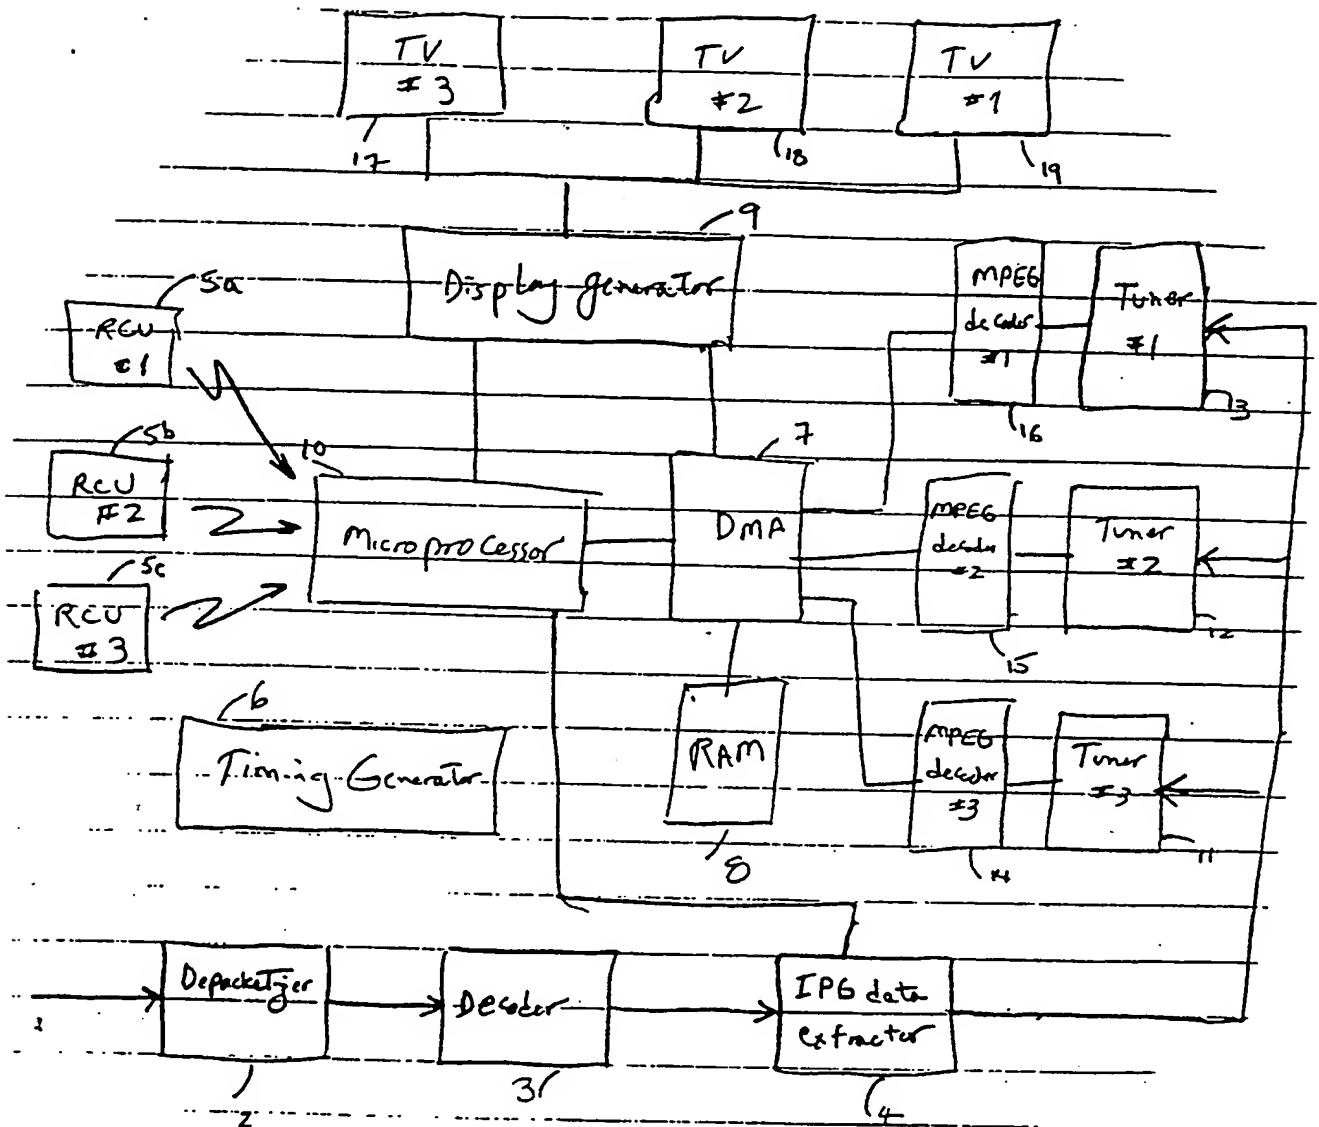 TV
#3
TV
#2
TV
#1
17
18
19
9
Display generator
5a
RCU
#1
MPEG
decoder
#1
Tuner
#1
13
16
5b
10
7
RCU
#2
Microprocessor
DMA
MPEG
decoder
#2
Tuner
#2
12
15
5c
RCU
#3
6
Timing Generator
RAM
8
MPEG
decoder
#3
Tuner
#3
11
14
Depacketizer
Decoder
IPG data
extractor
2
3
4